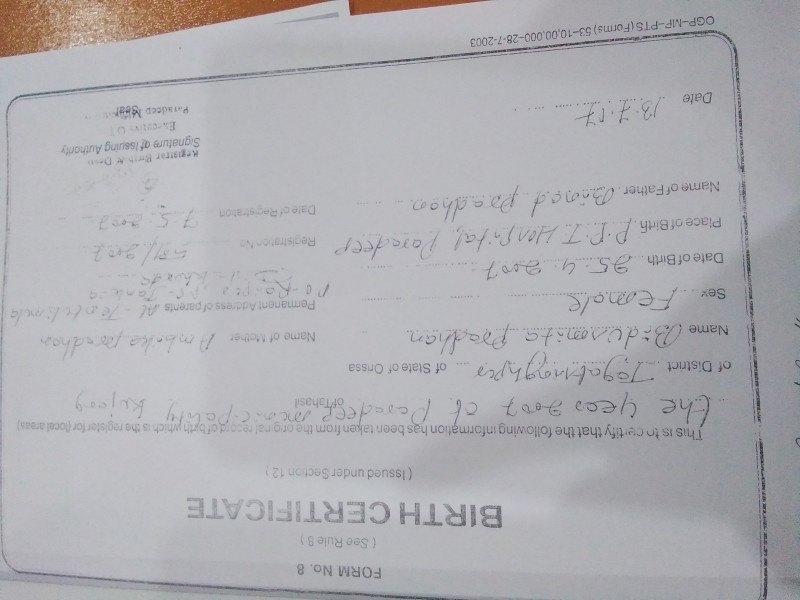 FORM No. 8
( See Rule 8 )
BIRTH CERTIFICATE
( Issued under Section 12 )
This is to certify that the following information has been taken from the original record of birth which is the register for (local areas)
the year 2007 of Paradeep municipality of Tahasil Kujang
of District Jagatsinghpur of State of Orissa
Name Bidusmita Pradhan
Name of Mother Ambika pradhan
Sex Female
Permanent Address of parents At -
Po -
Date of Birth 25.4.2007
Place of Birth P.P.T. Hospital, Paradeep
Registration No 571/2007
Name of Father Binod Pradhan
Date of Registration 7.5.2007
Date 13.7.17
Registrar Birth & Death
Signature of Issuing Authority
Executive
Paradeep
Seal
OGP-MF-PTS (Forms) 53-10,00,000-28-7-2003